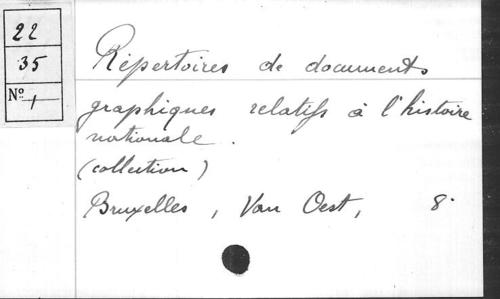 22
35
No 1
Répertoires de documents
graphiques relatifs à l'histoire
nationale.
(collection)
Bruxelles, Van Oest, 8°